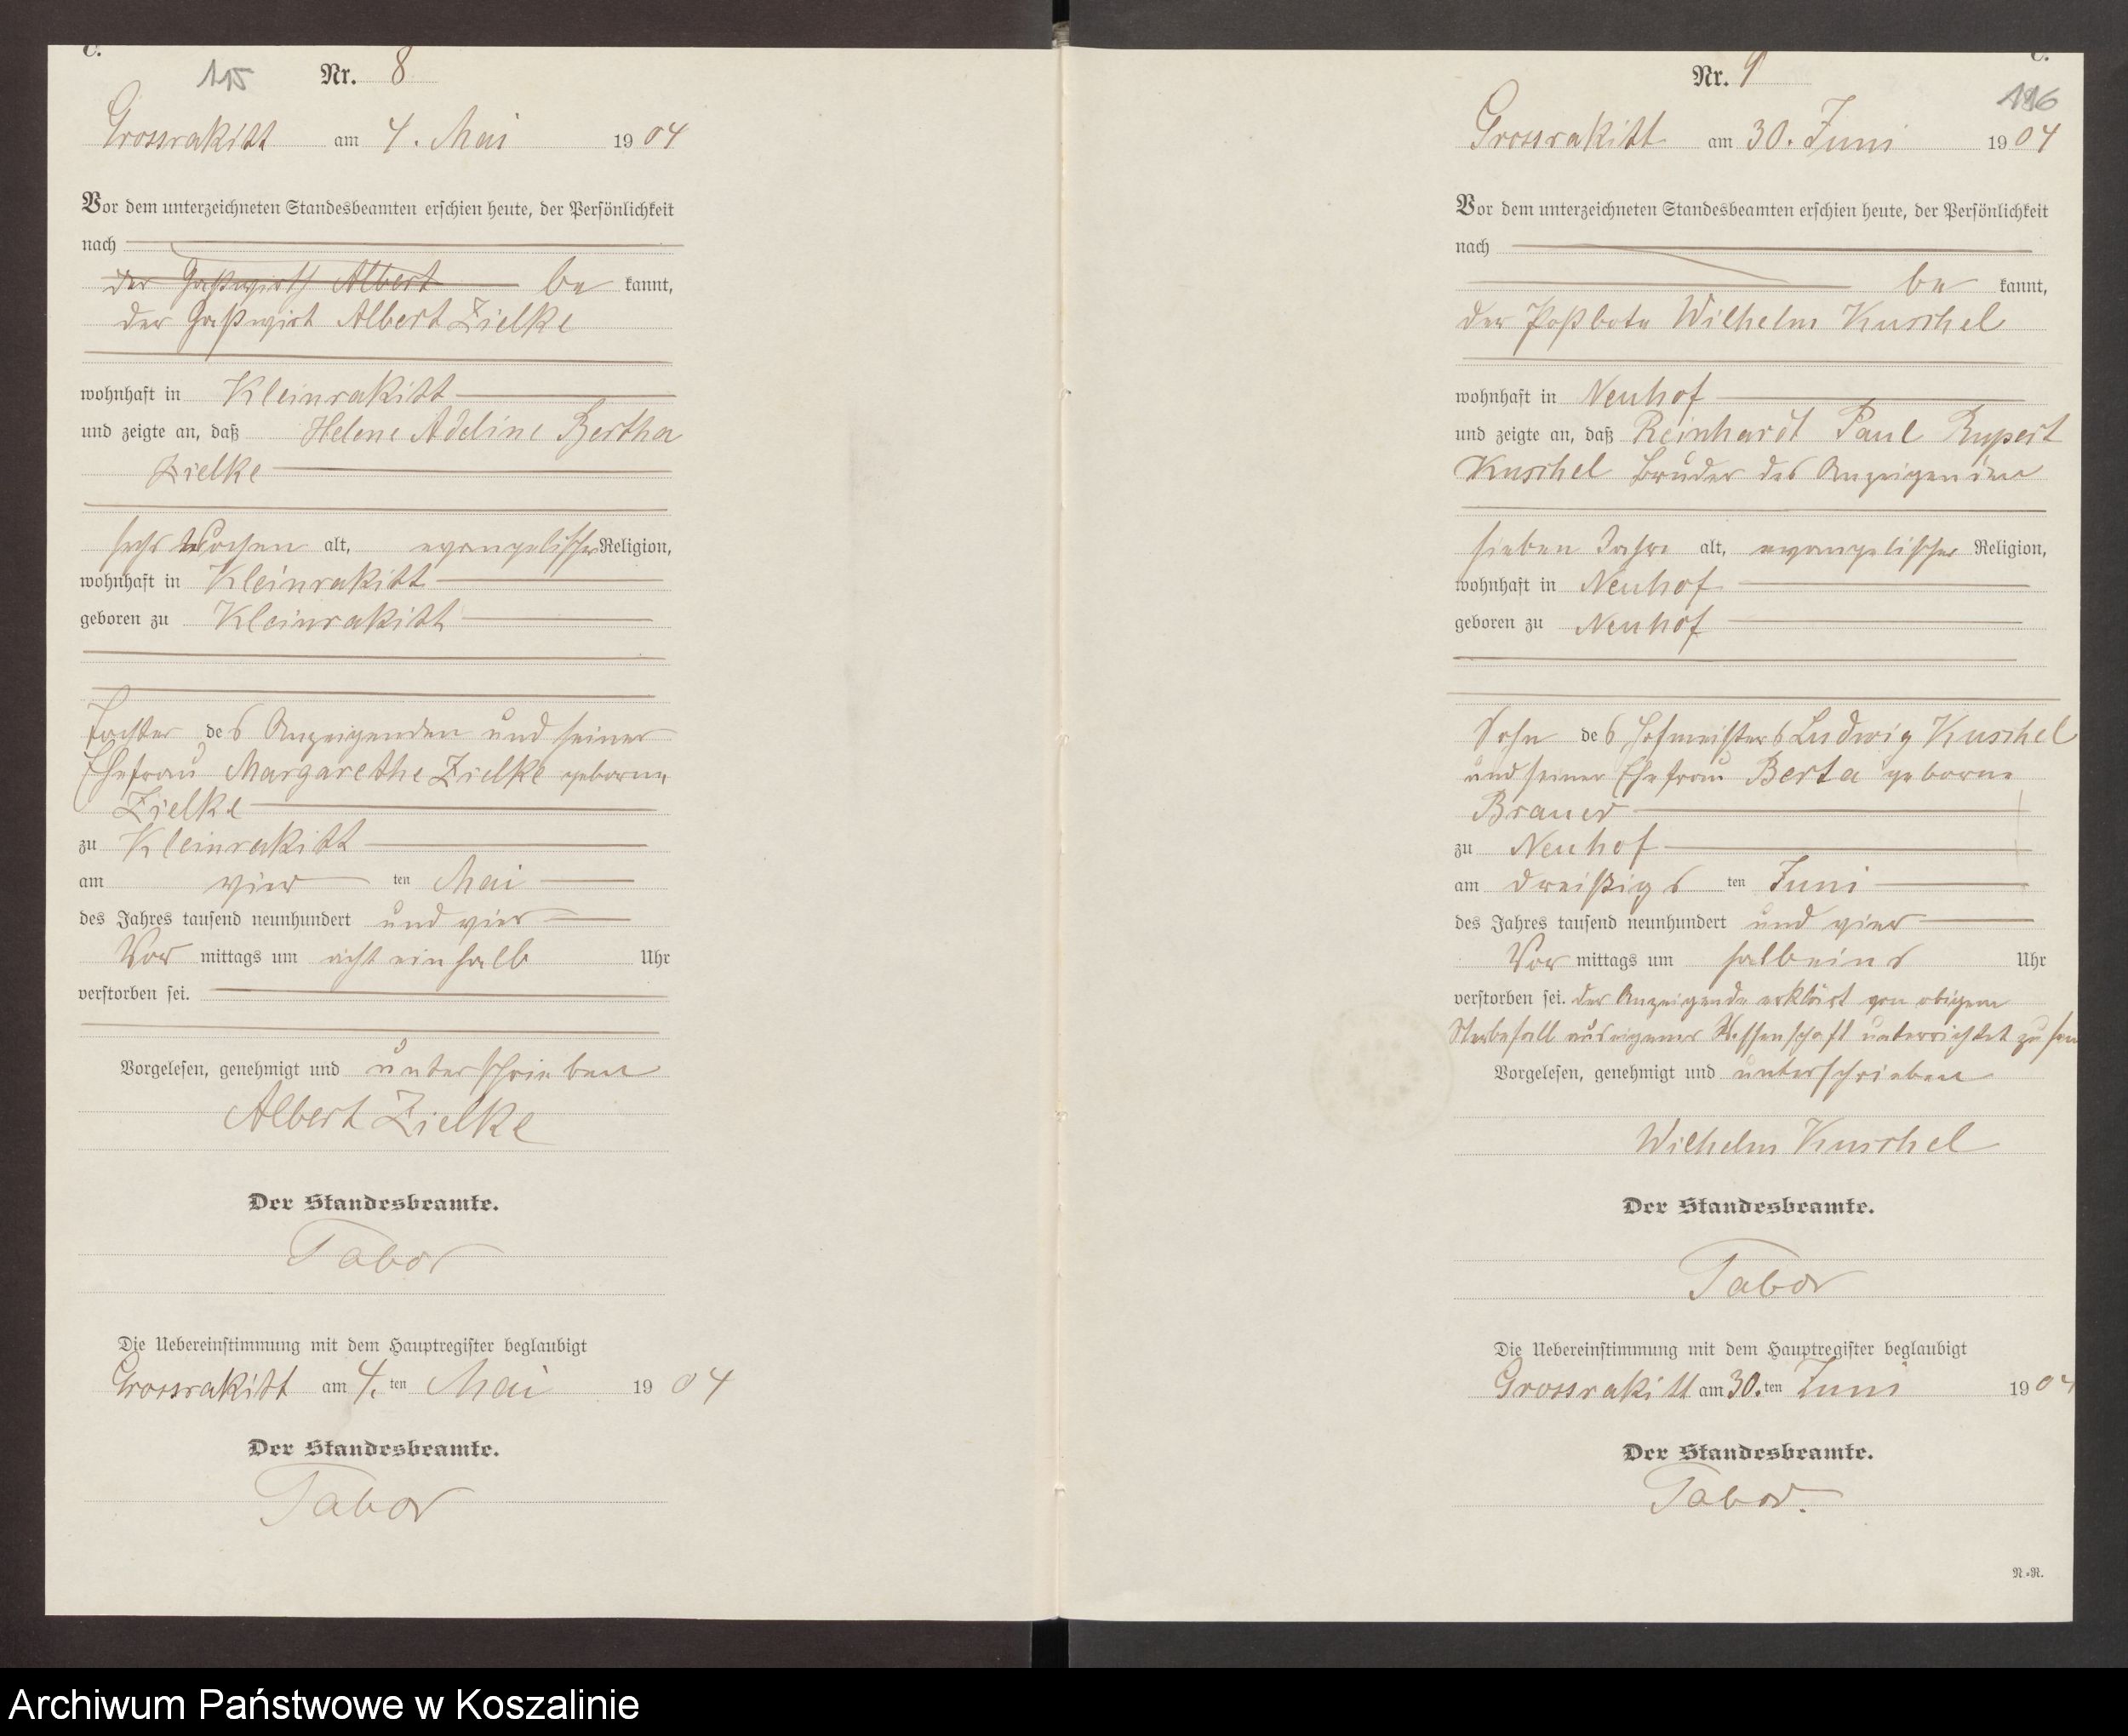 C.
115
Nr. 8
Grossrakitt am 4. Mai 1904
Vor dem unterzeichneten Standesbeamten erschien heute, der Persönlichkeit
nach
der Gastwirth Albert be kannt,
der Gastwirt Albert Zielke
wohnhaft in Kleinrakitt
und zeigte an, daß Helene Adeline Bertha
Zielke
sechs Wochen alt, evangelischer Religion,
wohnhaft in Kleinrakitt
geboren zu Kleinrakitt
Tochter des Anzeigenden und seiner
Ehefrau Margarethe Zielke geborne
Zielke
zu Kleinrakitt
am vier ten Mai
des Jahres tausend neunhundert und vier
Vor mittags um acht einhalb Uhr
verstorben sei.
Vorgelesen, genehmigt und unterschrieben
Albert Zielke
Der Standesbeamte.
Tabor
Die Uebereinstimmung mit dem Hauptregister beglaubigt
Grossrakitt am 4. ten Mai 1904
Der Standesbeamte.
Tabor
C.
Nr. 9
116
Grossrakitt am 30. Juni 1904
Vor dem unterzeichneten Standesbeamten erschien heute, der Persönlichkeit
nach
be kannt,
der Postbote Wilhelm Kuschel
wohnhaft in Neuhof
und zeigte an, daß Reinhardt Paul Rupert
Kuschel Bruder des Anzeigenden
sieben Jahre alt, evangelischer Religion,
wohnhaft in Neuhof
geboren zu Neuhof
Sohn des Hofmeisters Ludwig Kuschel
und seiner Ehefrau Berta geborne
Brauer
zu Neuhof
am dreißigs ten Juni
des Jahres tausend neunhundert und vier
Vor mittags um halbeins Uhr
verstorben sei. Der Anzeigende erklärt von obigem
Sterbefall aus eigener Wissenschaft unterrichtet zu sein
Vorgelesen, genehmigt und unterschrieben
Wilhelm Kuschel
Der Standesbeamte.
Tabor
Die Uebereinstimmung mit dem Hauptregister beglaubigt
Grossrakitt am 30. ten Juni 1904
Der Standesbeamte.
Tabor.
N.=R.
Archiwum Państwowe w Koszalinie